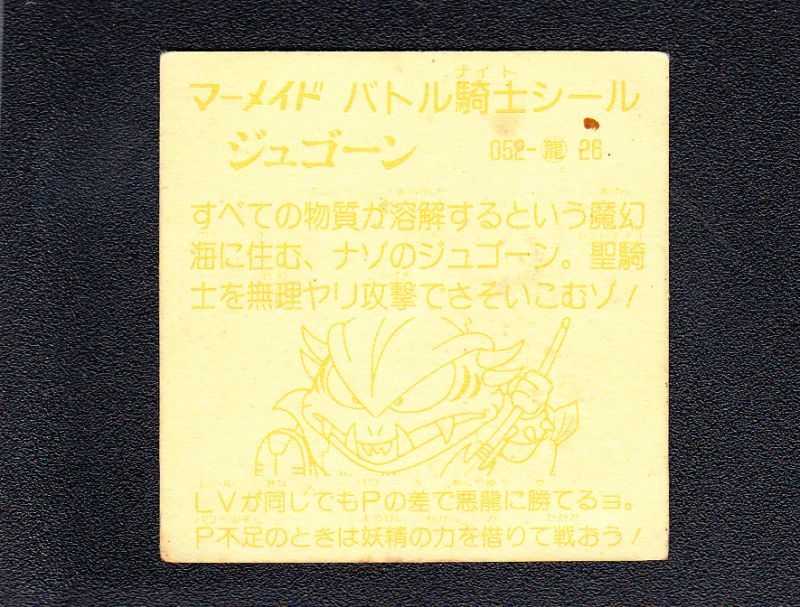 マーメイド バトル騎士シール
ナイト
ジュゴーン 052-龍 26
すべての物質が溶解するという魔幻
海に住む、ナゾのジュゴーン。聖騎
士を無理ヤリ攻撃でさそいこむゾ!
LVが同じでもPの差で悪龍に勝てるヨ。
P不足のときは妖精の力を借りて戦おう!